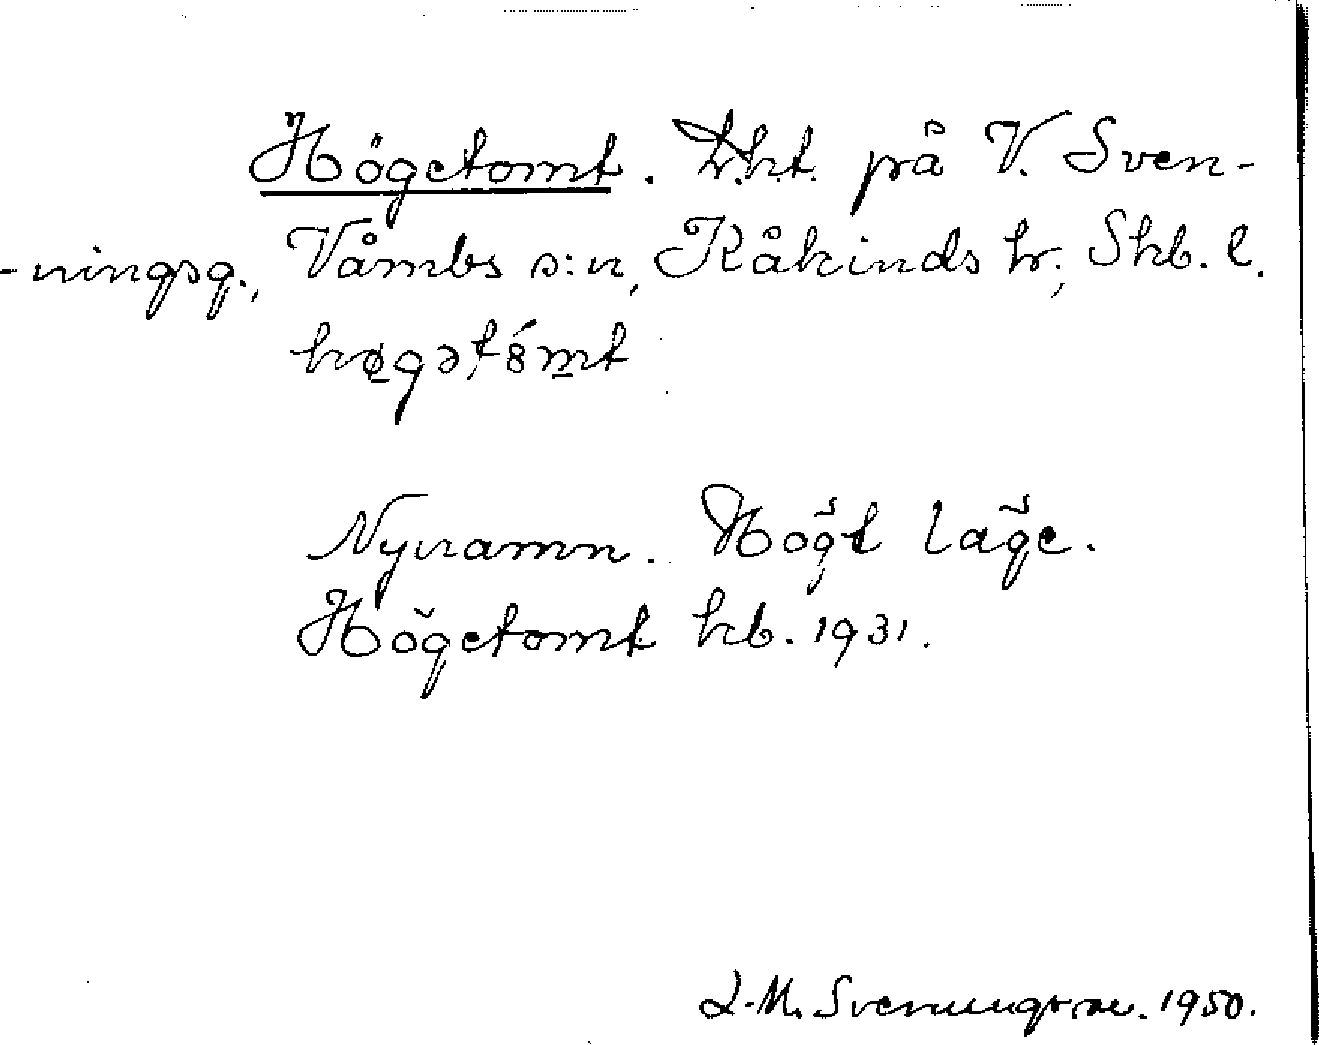 Högetomt. Lht. på V. Sven-
-ningsg., Våmbs s:n, Kåkinds hr., Skb. l.
høgətômt
Nynamn. Högt läge.
Högetomt kb. 1931.
L-M. Svenungsson. 1950.